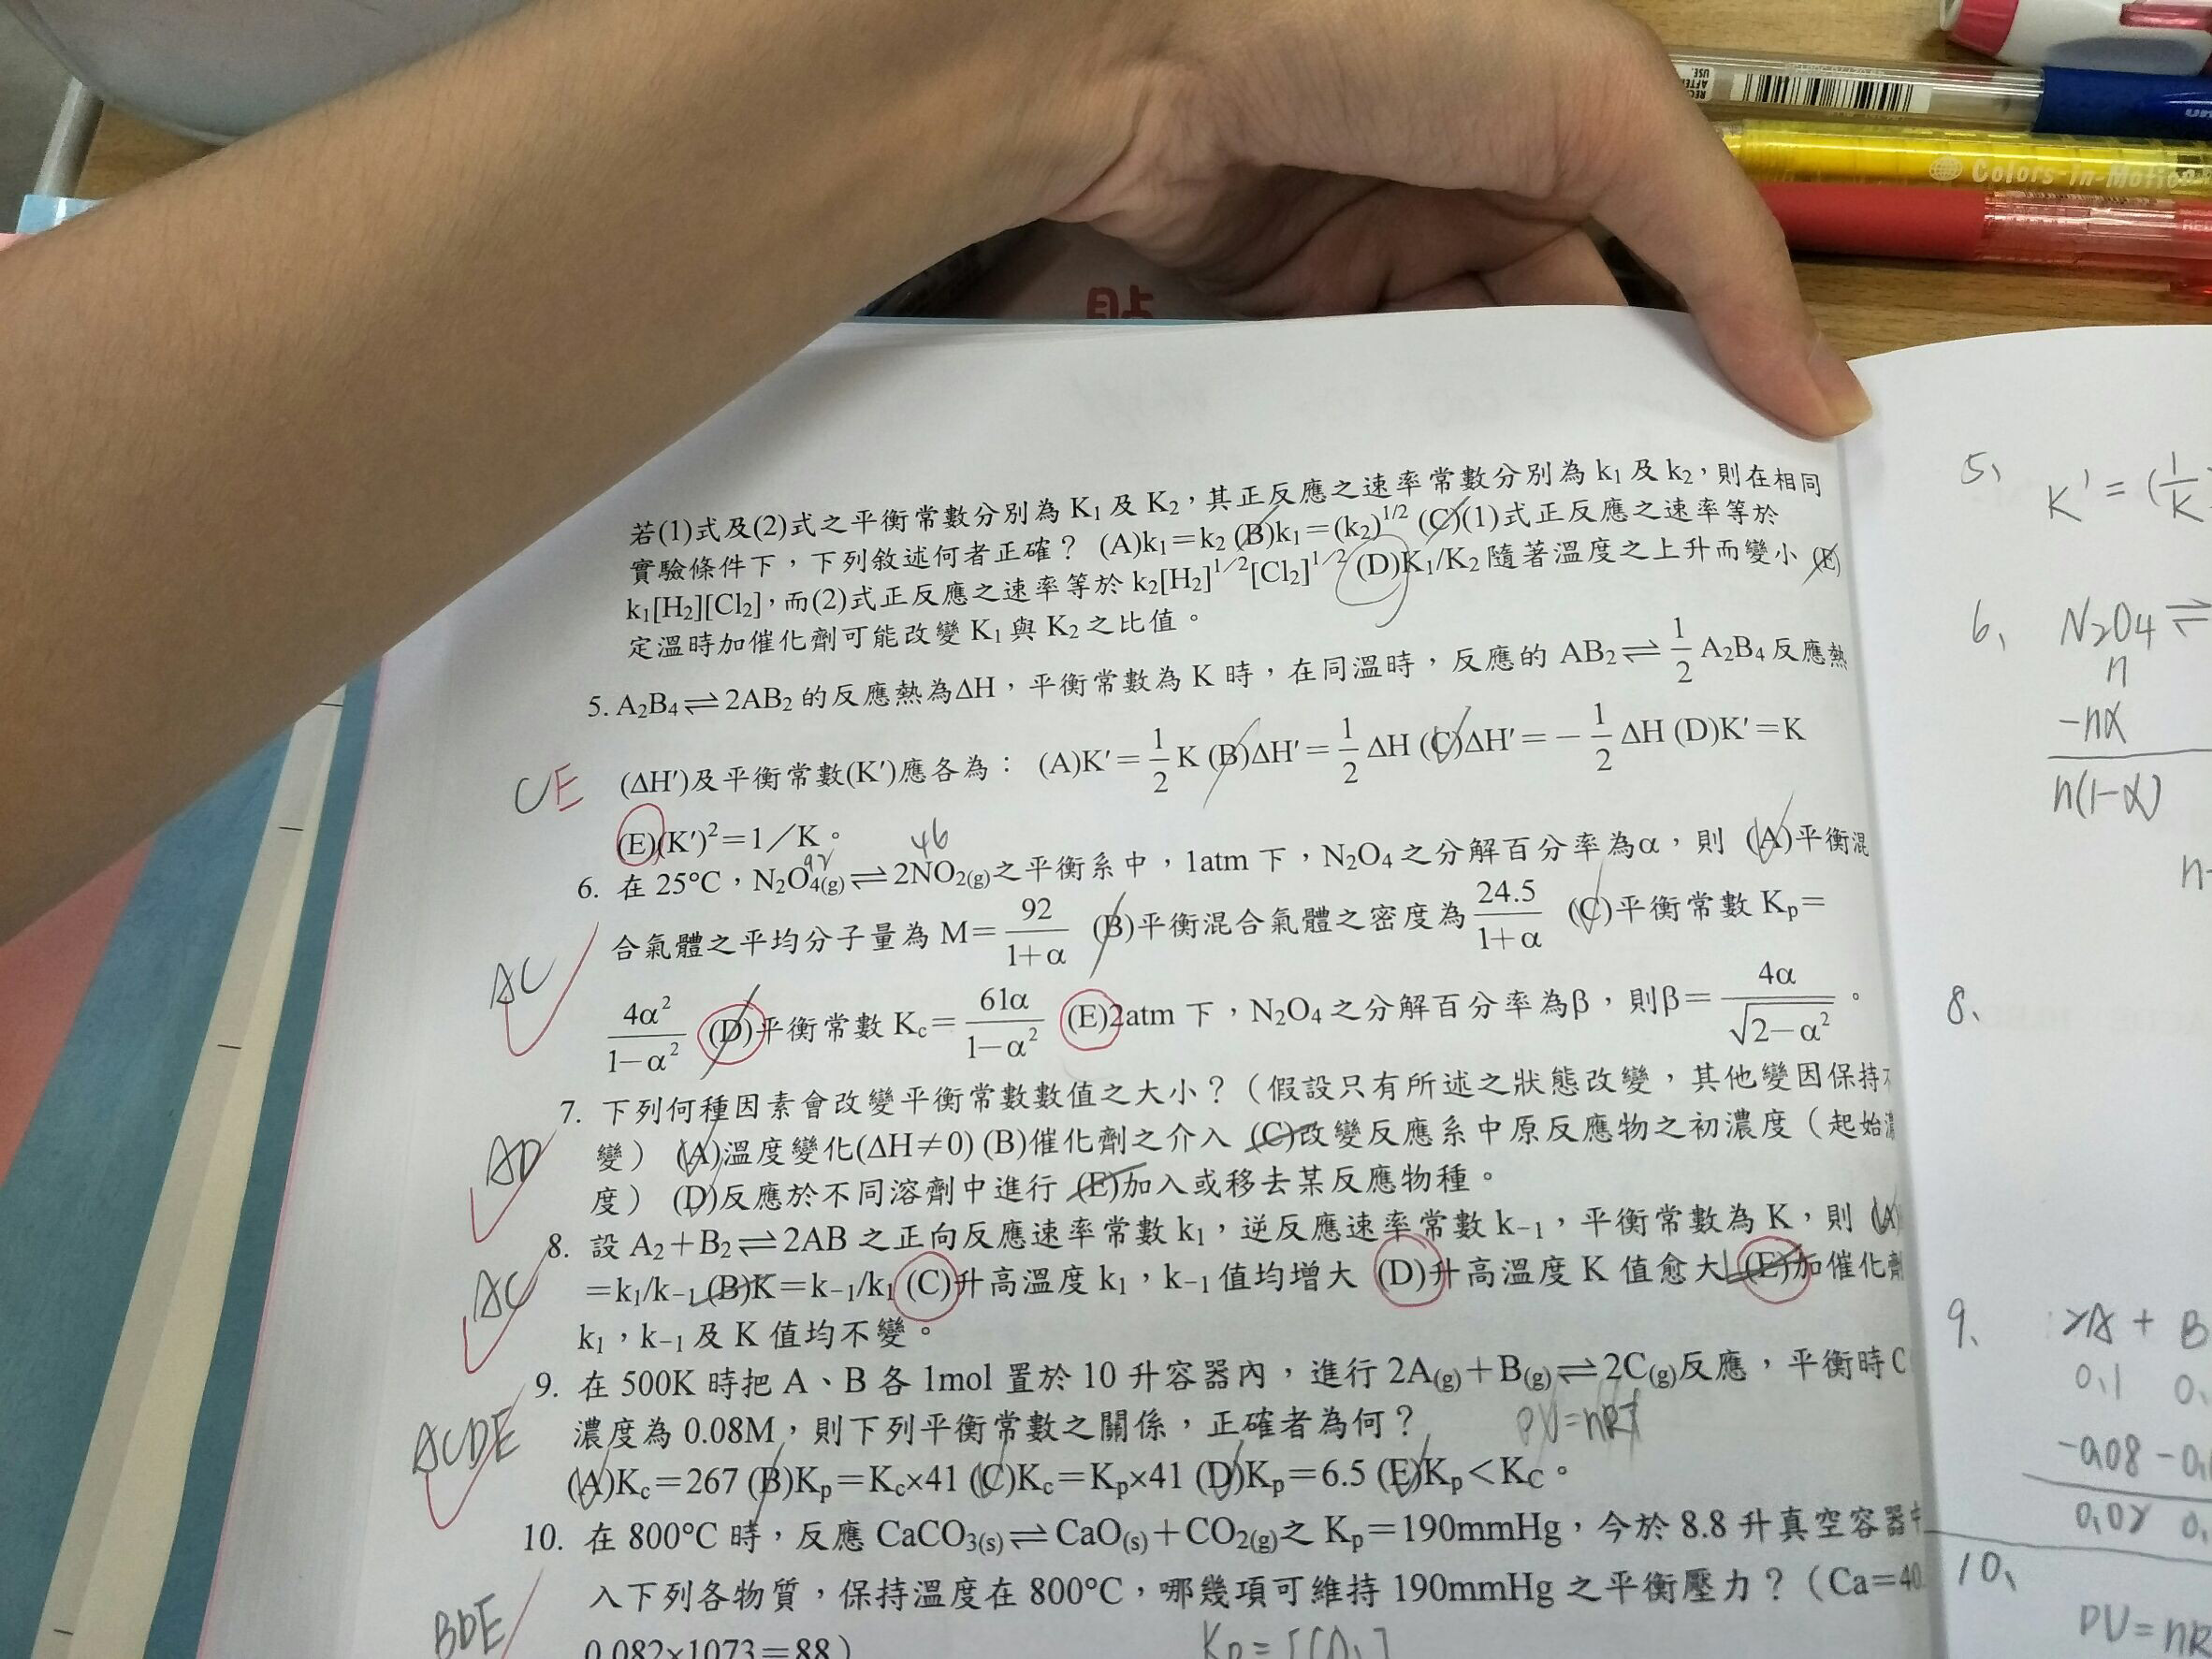 REC
AFTER
USE.
Colors-in-Motion
貼
若(1)式及(2)式之平衡常數分別為 K₁ 及 K₂，其正反應之速率常數分別為 k₁ 及 k₂，則在相同
實驗條件下，下列敘述何者正確？ (A)k₁=k₂ (B)k₁=(k₂)^1/2 (C)(1)式正反應之速率等於
k₁[H₂][Cl₂]，而(2)式正反應之速率等於 k₂[H₂]^1/2[Cl₂]^1/2 (D)K₁/K₂ 隨著溫度之上升而變小 (E)
定溫時加催化劑可能改變 K₁ 與 K₂ 之比值。
5. A₂B₄⇌2AB₂ 的反應熱為ΔH，平衡常數為 K 時，在同溫時，反應的 AB₂⇌1/2 A₂B₄ 反應熱
CE (ΔH′)及平衡常數(K′)應各為： (A)K′=1/2 K (B)ΔH′=1/2 ΔH (C)ΔH′=−1/2 ΔH (D)K′=K
(E)(K′)²=1／K。
92 46
6. 在 25°C，N₂O₄(g)⇌2NO₂(g)之平衡系中，1atm 下，N₂O₄ 之分解百分率為α，則 (A)平衡混
合氣體之平均分子量為 M=92/(1+α) (B)平衡混合氣體之密度為24.5/(1+α) (C)平衡常數 Kp=
AC 4α²/(1−α²) (D)平衡常數 Kc=61α/(1−α²) (E)2atm 下，N₂O₄ 之分解百分率為β，則β=4α/√(2−α²)。
7. 下列何種因素會改變平衡常數數值之大小？（假設只有所述之狀態改變，其他變因保持不
AD 變） (A)溫度變化(ΔH≠0) (B)催化劑之介入 (C)改變反應系中原反應物之初濃度（起始濃
度） (D)反應於不同溶劑中進行 (E)加入或移去某反應物種。
8. 設 A₂+B₂⇌2AB 之正向反應速率常數 k₁，逆反應速率常數 k₋₁，平衡常數為 K，則 (A)
AC =k₁/k₋₁ (B)K=k₋₁/k₁ (C)升高溫度 k₁，k₋₁ 值均增大 (D)升高溫度 K 值愈大 (E)加催化劑
k₁，k₋₁ 及 K 值均不變。
9. 在 500K 時把 A、B 各 1mol 置於 10 升容器內，進行 2A(g)+B(g)⇌2C(g)反應，平衡時 C
ACDE 濃度為 0.08M，則下列平衡常數之關係，正確者為何？ PV=nRT
(A)Kc=267 (B)Kp=Kc×41 (C)Kc=Kp×41 (D)Kp=6.5 (E)Kp<KC。
10. 在 800°C 時，反應 CaCO₃(s)⇌CaO(s)+CO₂(g)之 Kp=190mmHg，今於 8.8 升真空容器中
入下列各物質，保持溫度在 800°C，哪幾項可維持 190mmHg 之平衡壓力？（Ca=40
BDE 0.082×1073=88） Kp=[CO₂]
5、 K′=(1/K
6、 N₂O₄ ⇌
n
-nα
n(1-α)
n-
8、
9、 2A + B
0.1 0.
-0.08 -0.
0.02 0.
10、
PV=nR